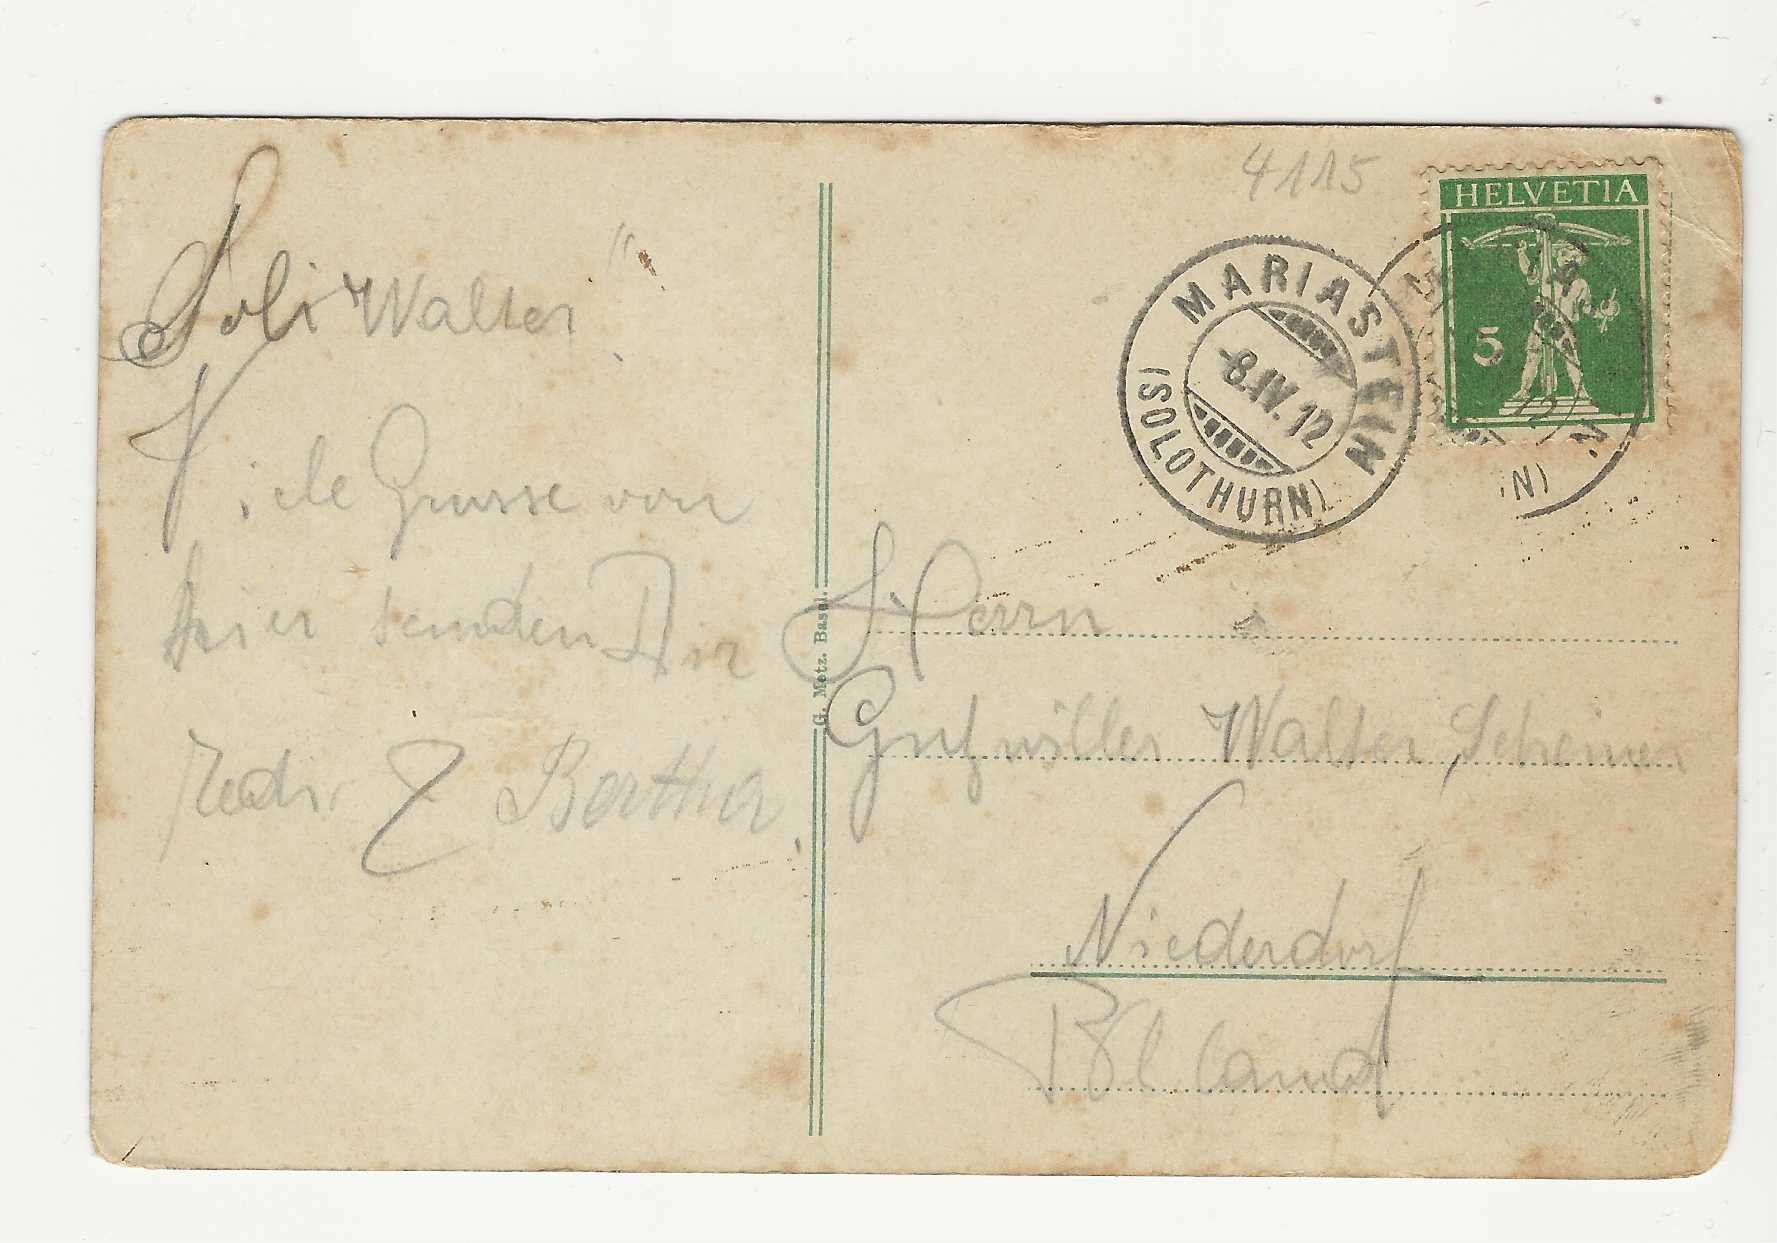 Soli Walter
Viele Grusse von
hier senden Dir
&
Bertha
4115
HELVETIA
5
MARIASTEIN
-8.IV.12
(SOLOTHURN)
G. Metz. Basel.
Herrn
Gutzwiller Walter, Schreiner
Niederdorf
Bslland